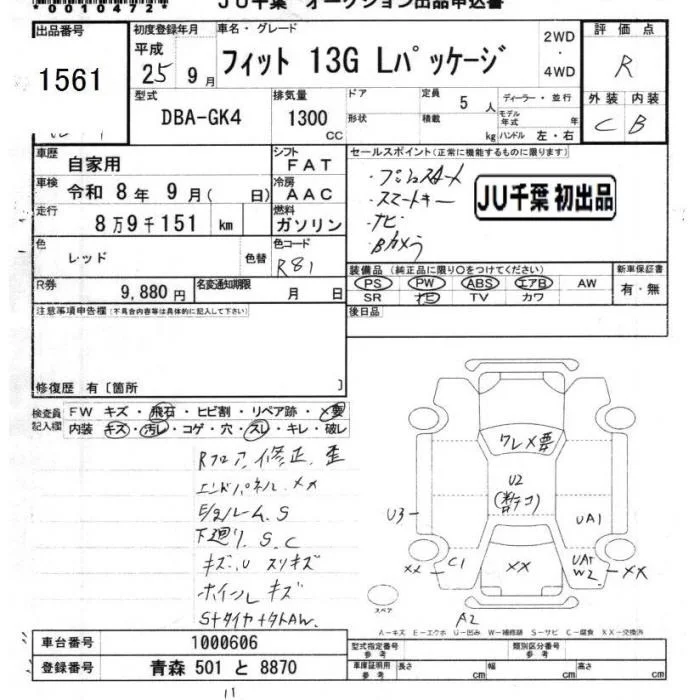 00010472
JU千葉 オークション出品申込書
出品番号
1561
初度登録年月
平成
25 9月
車名・グレード
フィット 13G Lパッケージ
2WD
・
4WD
評価点
R
外装 内装
C B
型式
DBA-GK4
排気量
1300
CC
ドア
形状
定員 5 人
積載 kg
ディーラー・並行
モデル年式 年
ハンドル 左・右
車歴 自家用
シフト FAT
車検 令和 8年 9月( 日)
冷房 AAC
走行 8万9千151 km
燃料 ガソリン
色 レッド 色替
色コード R81
R券 9,880円
名変通知期限 月 日
セールスポイント(正常に機能するものに限ります)
・プッシュスタート
・スマートキー
・ナビ
・Bカメラ
JU千葉 初出品
装備品(純正品に限り○をつけてください)
PS PW ABS エアB AW
SR ナビ TV カワ
新車保証書
有・無
後日品
注意事項申告欄(不具合内容等は具体的に記入して下さい)
修復歴 有〔箇所 〕
検査員記入欄
FW キズ・飛石・ヒビ割・リペア跡・×要
内装 キズ・汚レ・コゲ・穴・スレ・キレ・破レ
Rフロア、修正、歪
エンドパネル、××
E/gルーム、S
下廻り、S、C
キズ、U スリキズ
ホイール キズ
Sタイヤ+タトAW
ワレ×要
U2
U3
UA1
C1
××
××
W2
××
A2
スペア
A-キズ E-エクボ U-凹み W-補修跡 S-サビ C-腐食 XX-交換済
車台番号 1000606
登録番号 青森 501 と 8870
型式指定番号
参考
類別区分番号
参考
車庫証明用
参考
長さ cm
幅 cm
高さ cm